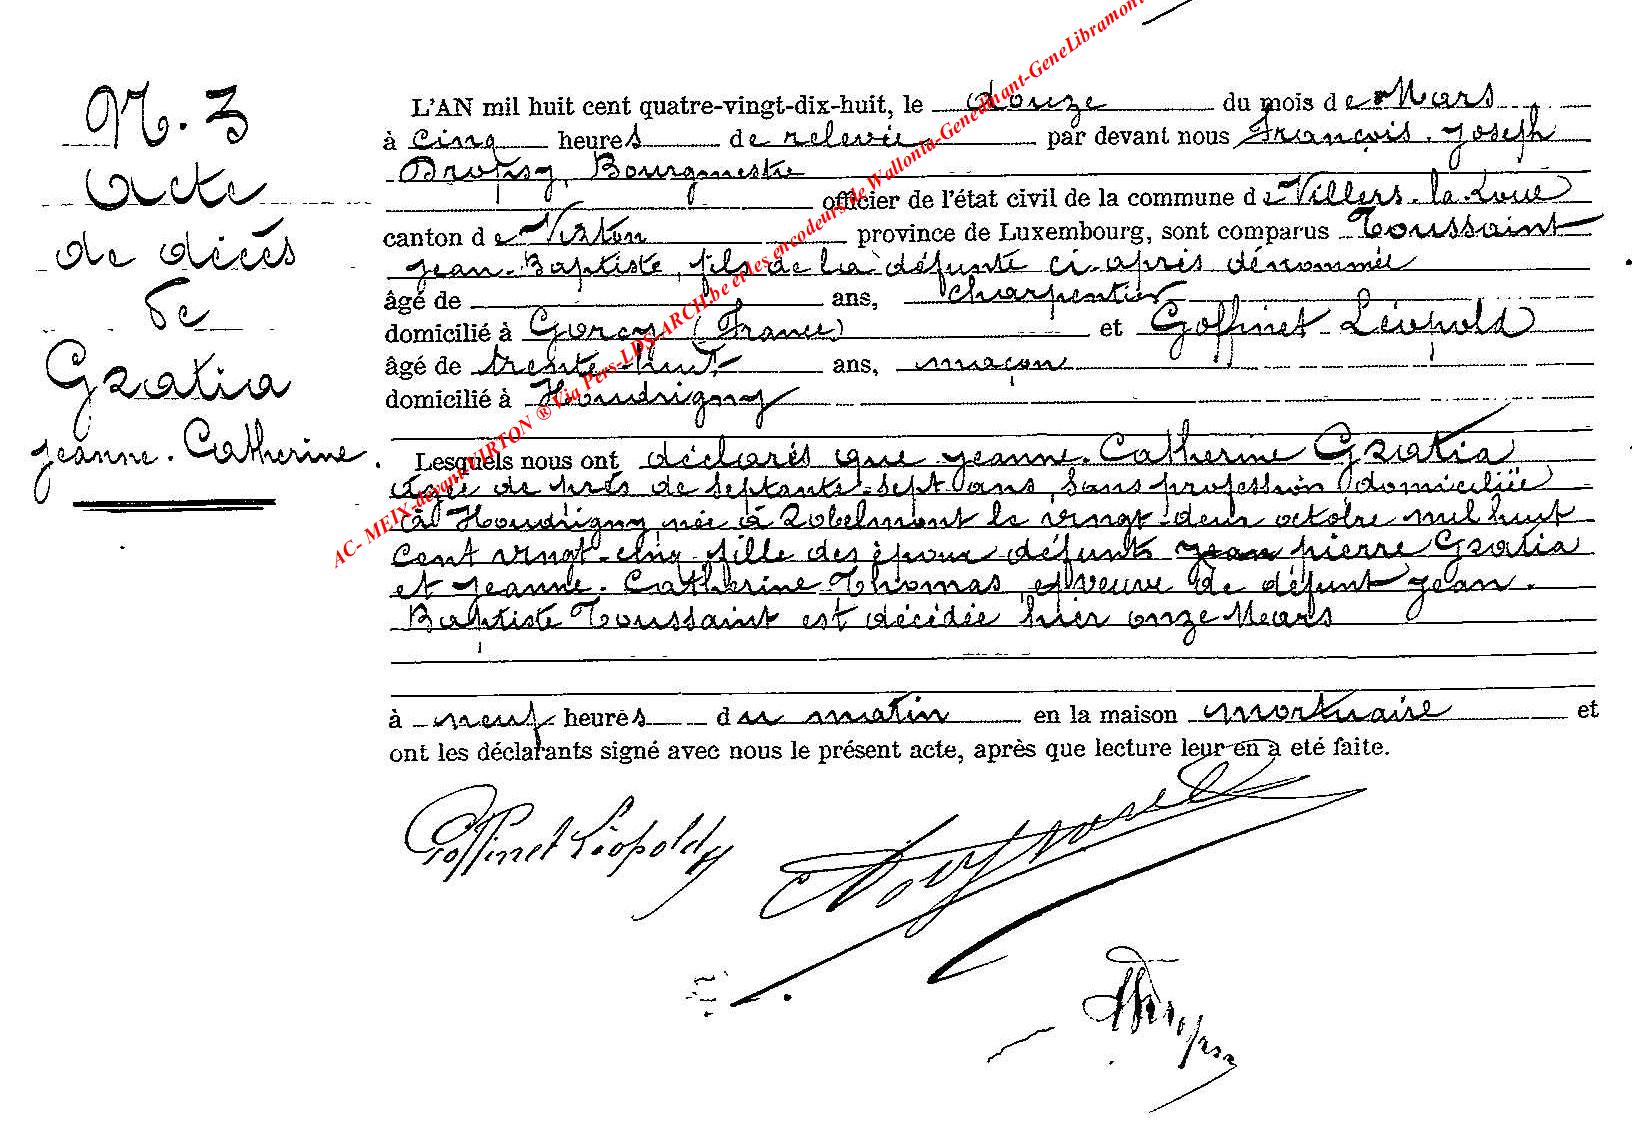 N. 3
Acte
de décès
de
Gratia
Jeanne-Catherine.
L'AN mil huit cent quatre-vingt-dix-huit, le douze du mois de Mars
à cinq heures de relevée par devant nous François-Joseph
Dropsy, Bourgmestre
officier de l'état civil de la commune de Villers-la-Loue
canton de Virton province de Luxembourg, sont comparus Toussaint
Jean-Baptiste, fils de la défunte ci-après dénommée
âgé de ans, charpentier
domicilié à Gorcy (France) et Goffinet Léopold
âgé de trente-huit ans, maçon
domicilié à Houdrigny
Lesquels nous ont déclarés que Jeanne-Catherine Gratia
âgée de près de septante-sept ans, sans profession domiciliée
à Houdrigny, née à Robelmont le vingt-deux octobre mil huit
cent vingt-cinq fille des époux défunts Jean pierre Gratia
et Jeanne-Catherine Thomas, et veuve de défunt Jean-
Baptiste Toussaint est décédée hier onze Mars
à neuf heures du matin en la maison mortuaire et
ont les déclarants signé avec nous le présent acte, après que lecture leur en a eté faite.
Goffinet Léopold
Dropsy
AC- MEIX-devant-VIRTON ® Via Pers-LDS-ARCH.be et les encodeurs de Wallonia-Genedinant-GeneLibramont